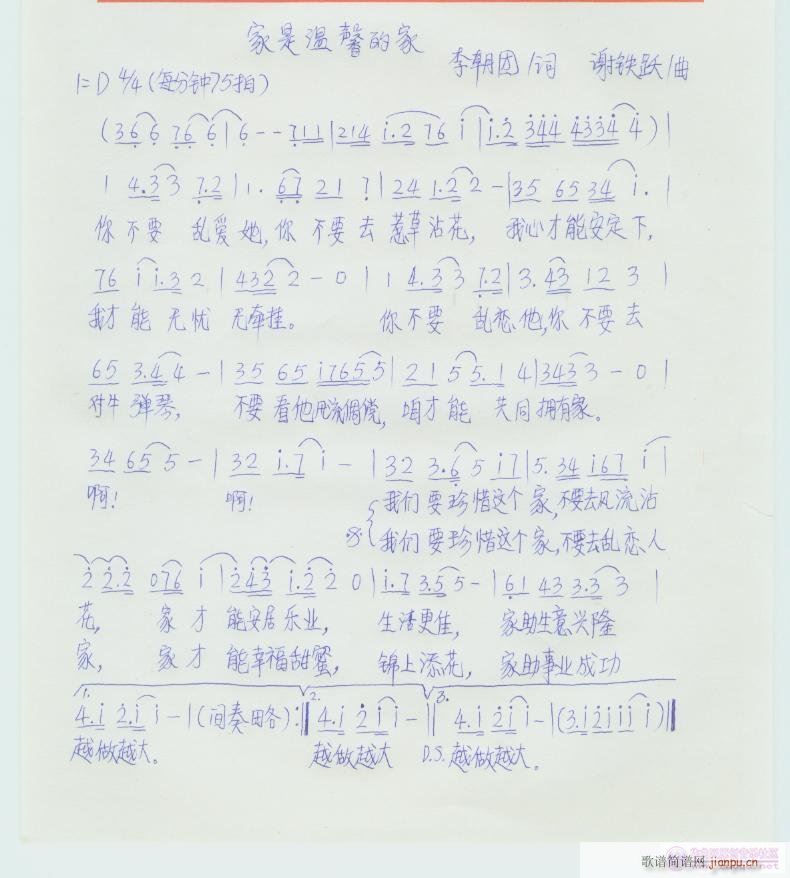 家是温馨的家
李朝团/词 谢铁跃/曲
1=D 4/4(每分钟75拍)
(36 6 76 6|6--711|214 i.2 76 i|i.2 344 4334 4)|
1 4.3 3 7.2|1. 67 21 7|24 1.2 2-|35 65 34 i.|
你不要 乱爱她,你 不要去 惹草沾花, 我心才能安定下,
76 i i.3 2|432 2-0|1 4.3 3 7.2|3. 43 12 3|
我才能 无忧 无牵挂。 你不要 乱恋他,你 不要去
65 3.4 4-|35 65 i765 5|21 5 5.1 4|343 3-0|
对牛弹琴, 不要看他风流倜傥, 咱才能 共同拥有家。
34 65 5-|32 i.7 i-|32 3.6 5 i7|5. 34 i67 i|
啊! 啊! 我们要珍惜这个家,不要去风流沾
我们要珍惜这个家,不要去乱恋人
2 2.2 076 i|243 i.2 2 0|i.7 3.5 5-|61 43 3.3 3|
花, 家才能安居乐业, 生活更佳, 家助生意兴隆
家, 家才能幸福甜蜜, 锦上添花, 家助事业成功
1. 2. 3.
4.i 2.i i-|(间奏略):‖4.i 2i i-‖4.i 2i i-|(3.i2iii i)‖
越做越大。 越做越大 D.S. 越做越大。
歌谱简谱网 jianpu.cn